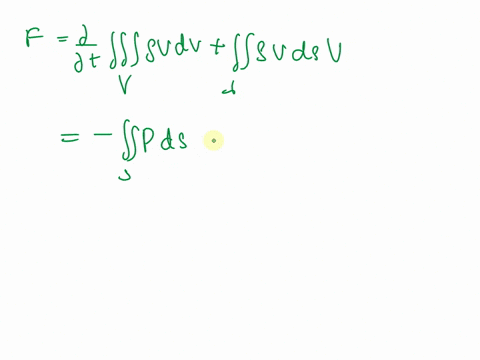 F = ∂/∂t ∭_V ρV dV + ∬_s ρV ds V
= - ∬_s P ds